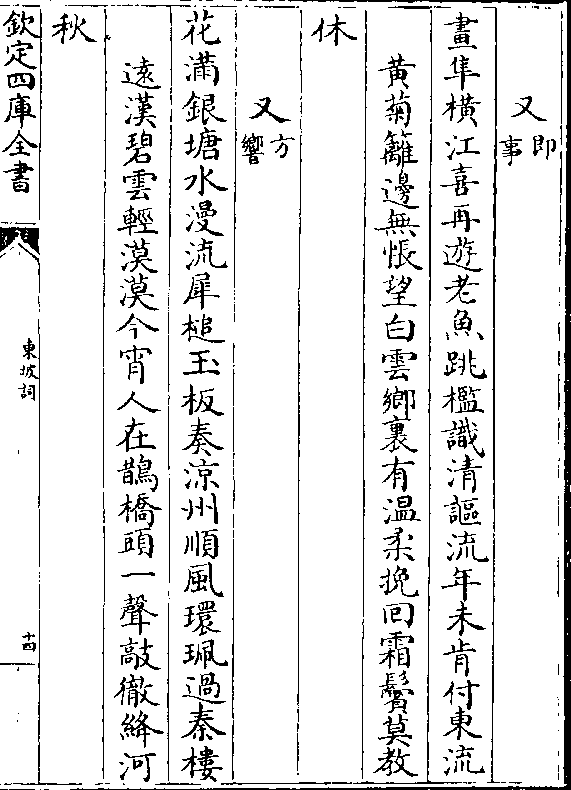 又即事
畫隼橫江喜再遊老魚跳檻識清謳流年未肯付東流
黃菊籬邊無悵望白雲鄉裏有温柔挽回霜鬢莫教
休
又方響
花滿銀塘水漫流犀槌玉板奏涼州順風環珮過秦樓
遠漢碧雲輕漠漠今宵人在鵲橋頭一聲敲徹絳河
秋
欽定四庫全書
東坡詞
十四